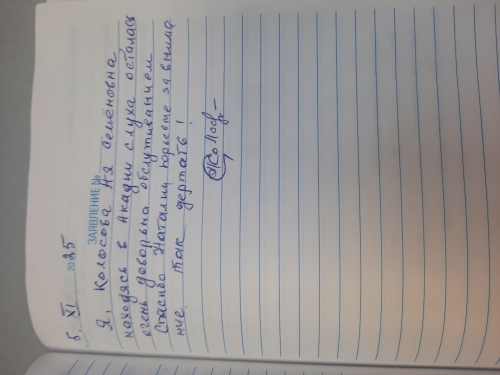 5. XI 2025
ЗАЯВЛЕНИЕ №
Я, Колосова Ия Семёновна
находясь в Акадии слуха осталась
очень довольна обслуживанием
Спасибо Наталии Юрьевне за внима
ние. Так держать!